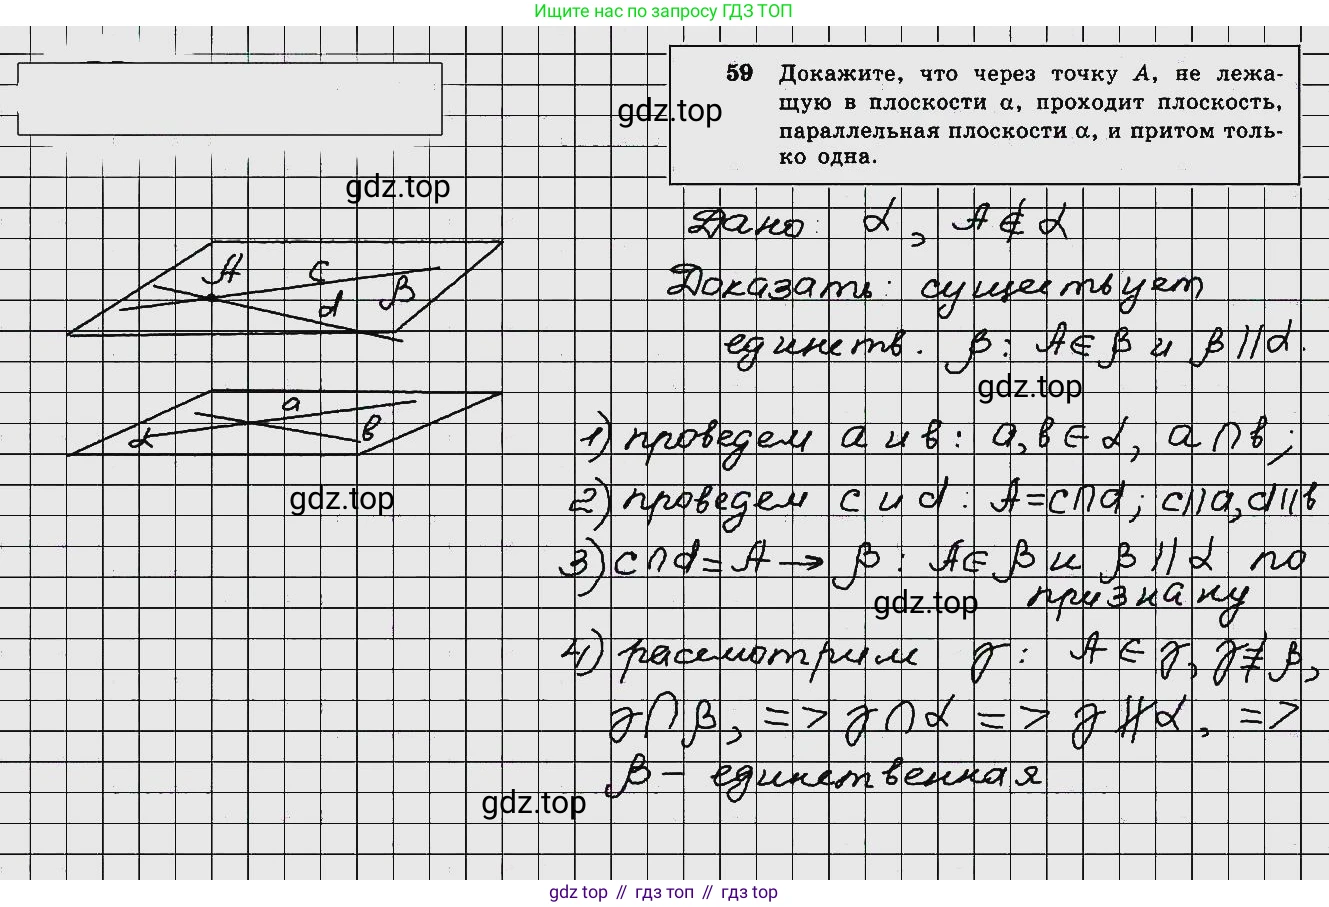 Ищите нас по запросу ГДЗ ТОП
59 Докажите, что через точку A, не лежа-
щую в плоскости α, проходит плоскость,
параллельная плоскости α, и притом толь-
ко одна.
gdz.top
gdz.top
Дано: α, A∉α
Доказать: существует
единств. β: A∈β и β∥α.
gdz.top
A c d β
a в α
gdz.top
1) проведем a и в: a,в∈α, a∩в;
2) проведем c и d: A=c∩d; c∥a, d∥в
3) c∩d=A → β: A∈β и β∥α по
признаку
gdz.top
4) рассмотрим γ: A∈γ, γ≠β,
γ∩β, => γ∩α => γ∦α, =>
β – единственная
gdz.top
gdz top // гдз топ // gdz top